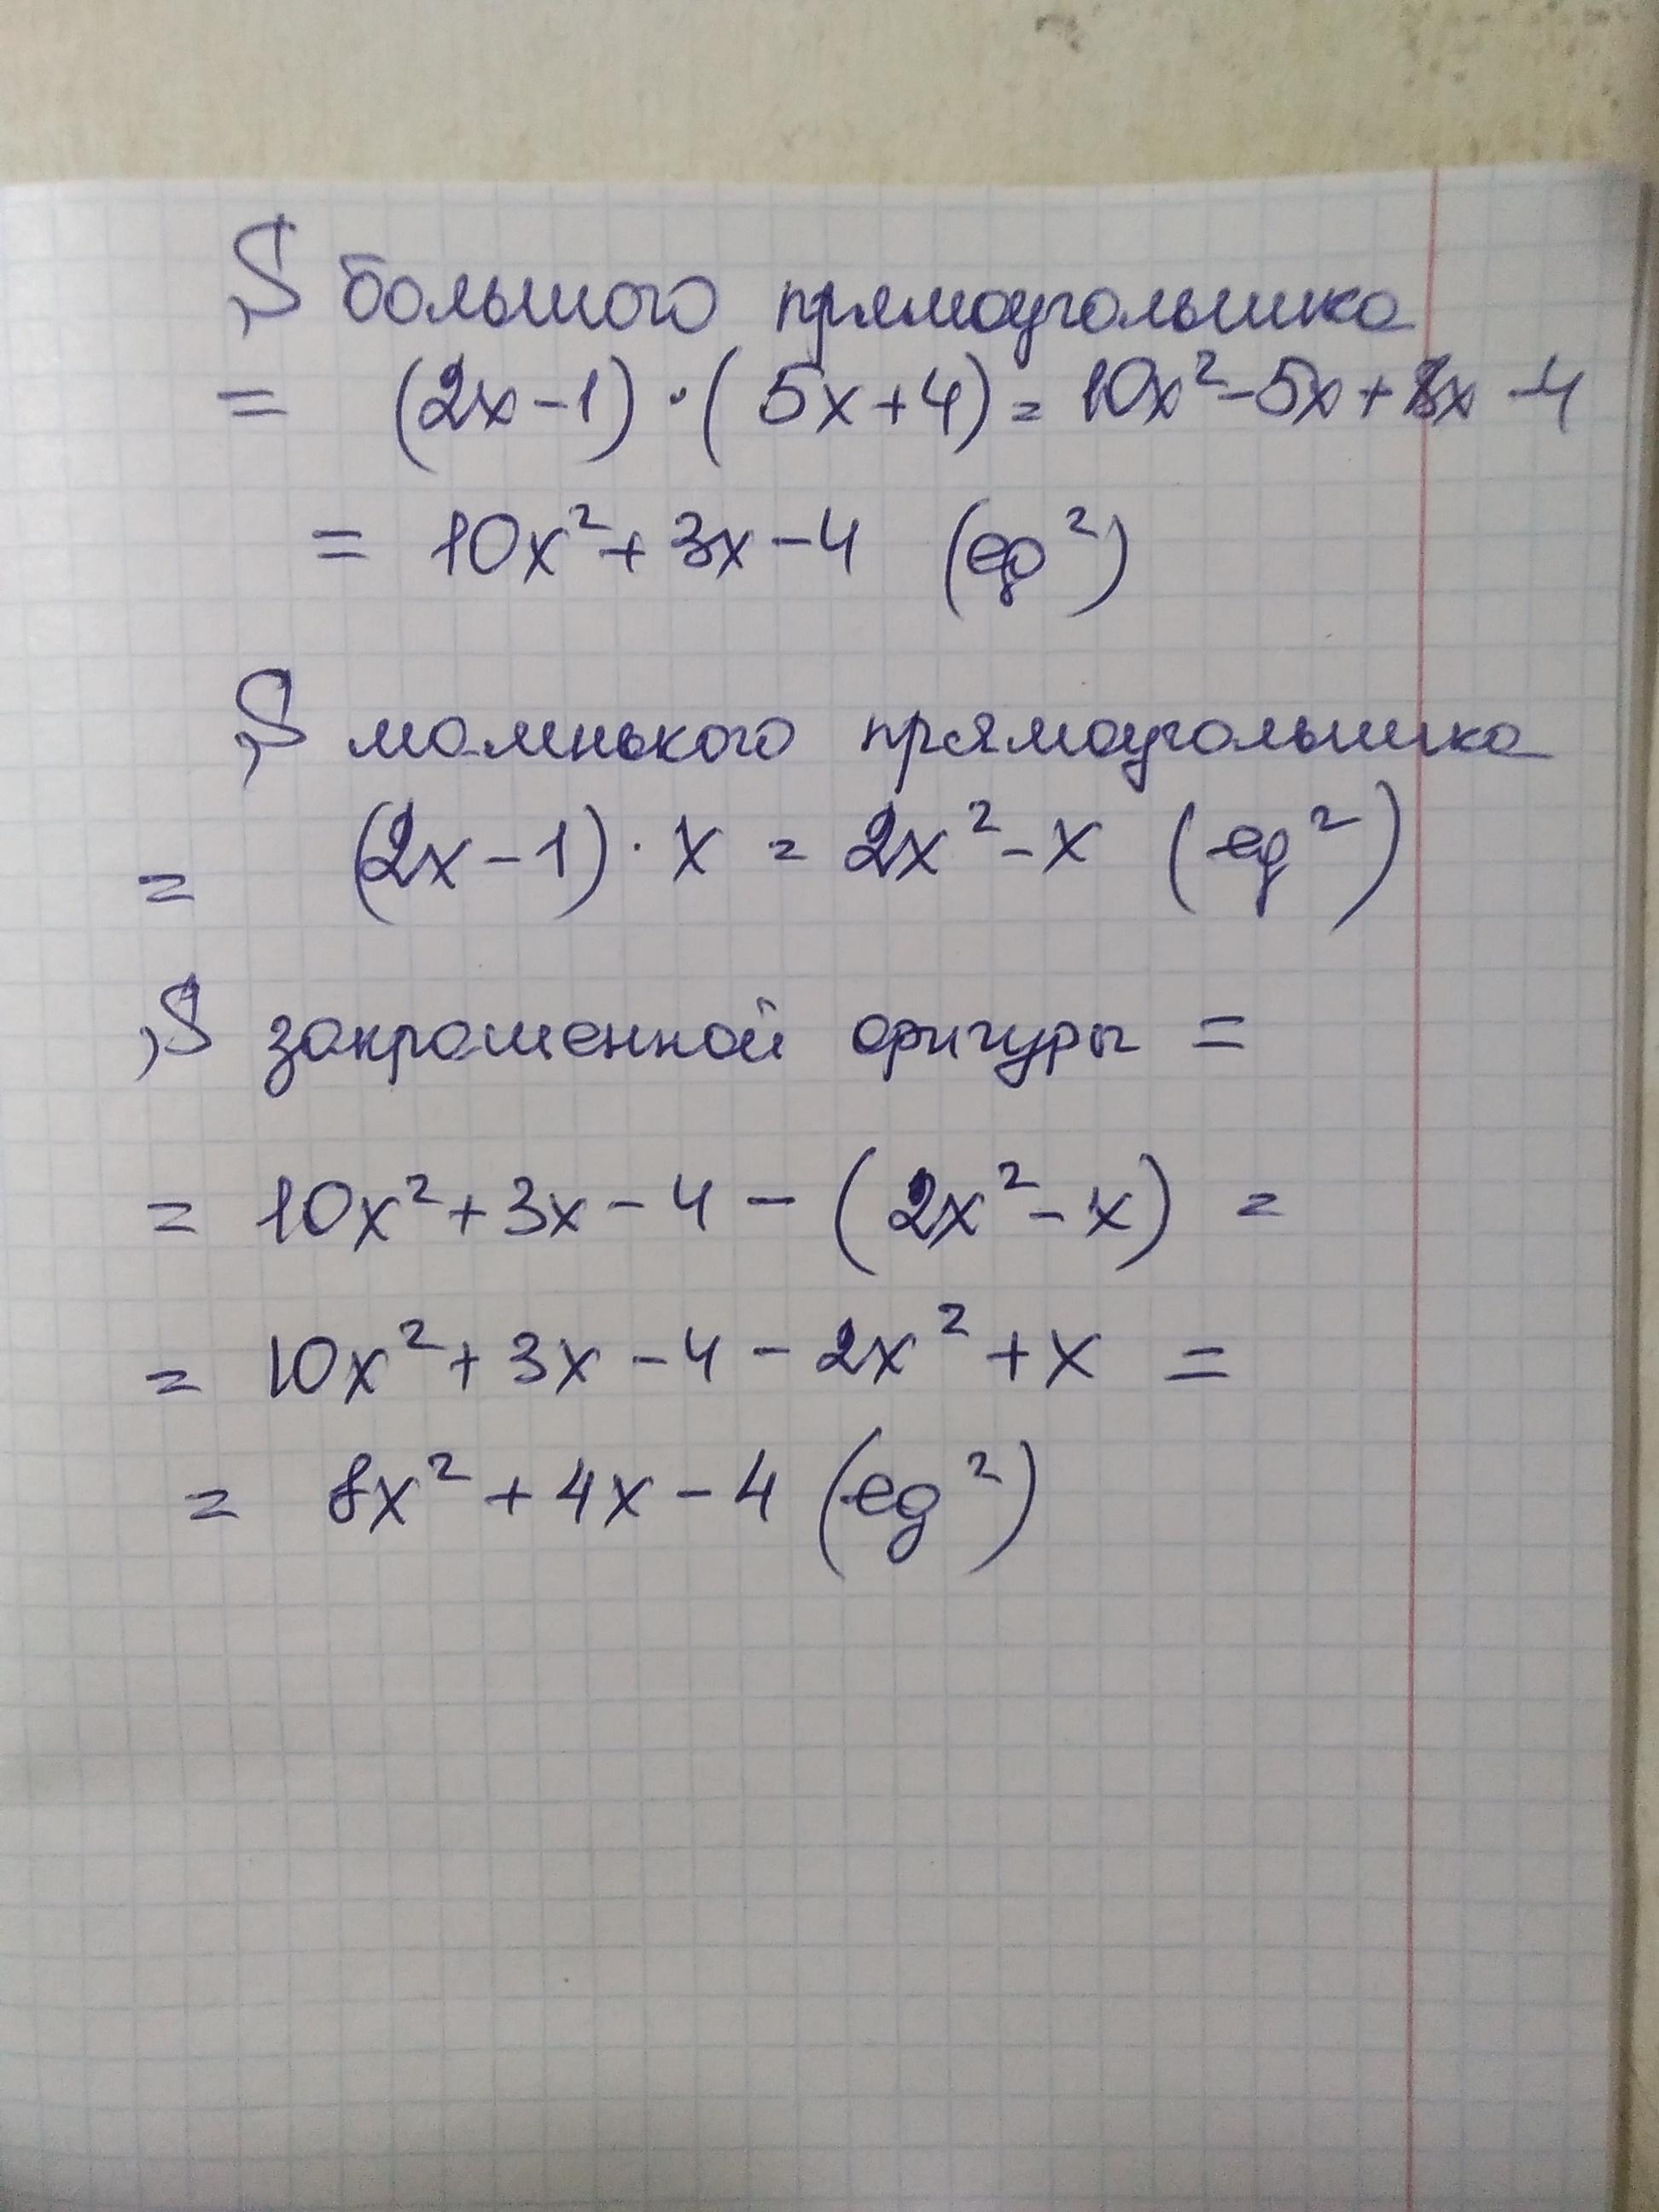 S большого прямоугольника
= (2x-1)·(5x+4) = 10x²-5x+8x-4
= 10x²+3x-4 (ед²)
S маленького прямоугольника
= (2x-1)·x = 2x²-x (ед²)
S закрашенной фигуры =
= 10x²+3x-4-(2x²-x) =
= 10x²+3x-4-2x²+x =
= 8x²+4x-4 (ед²)